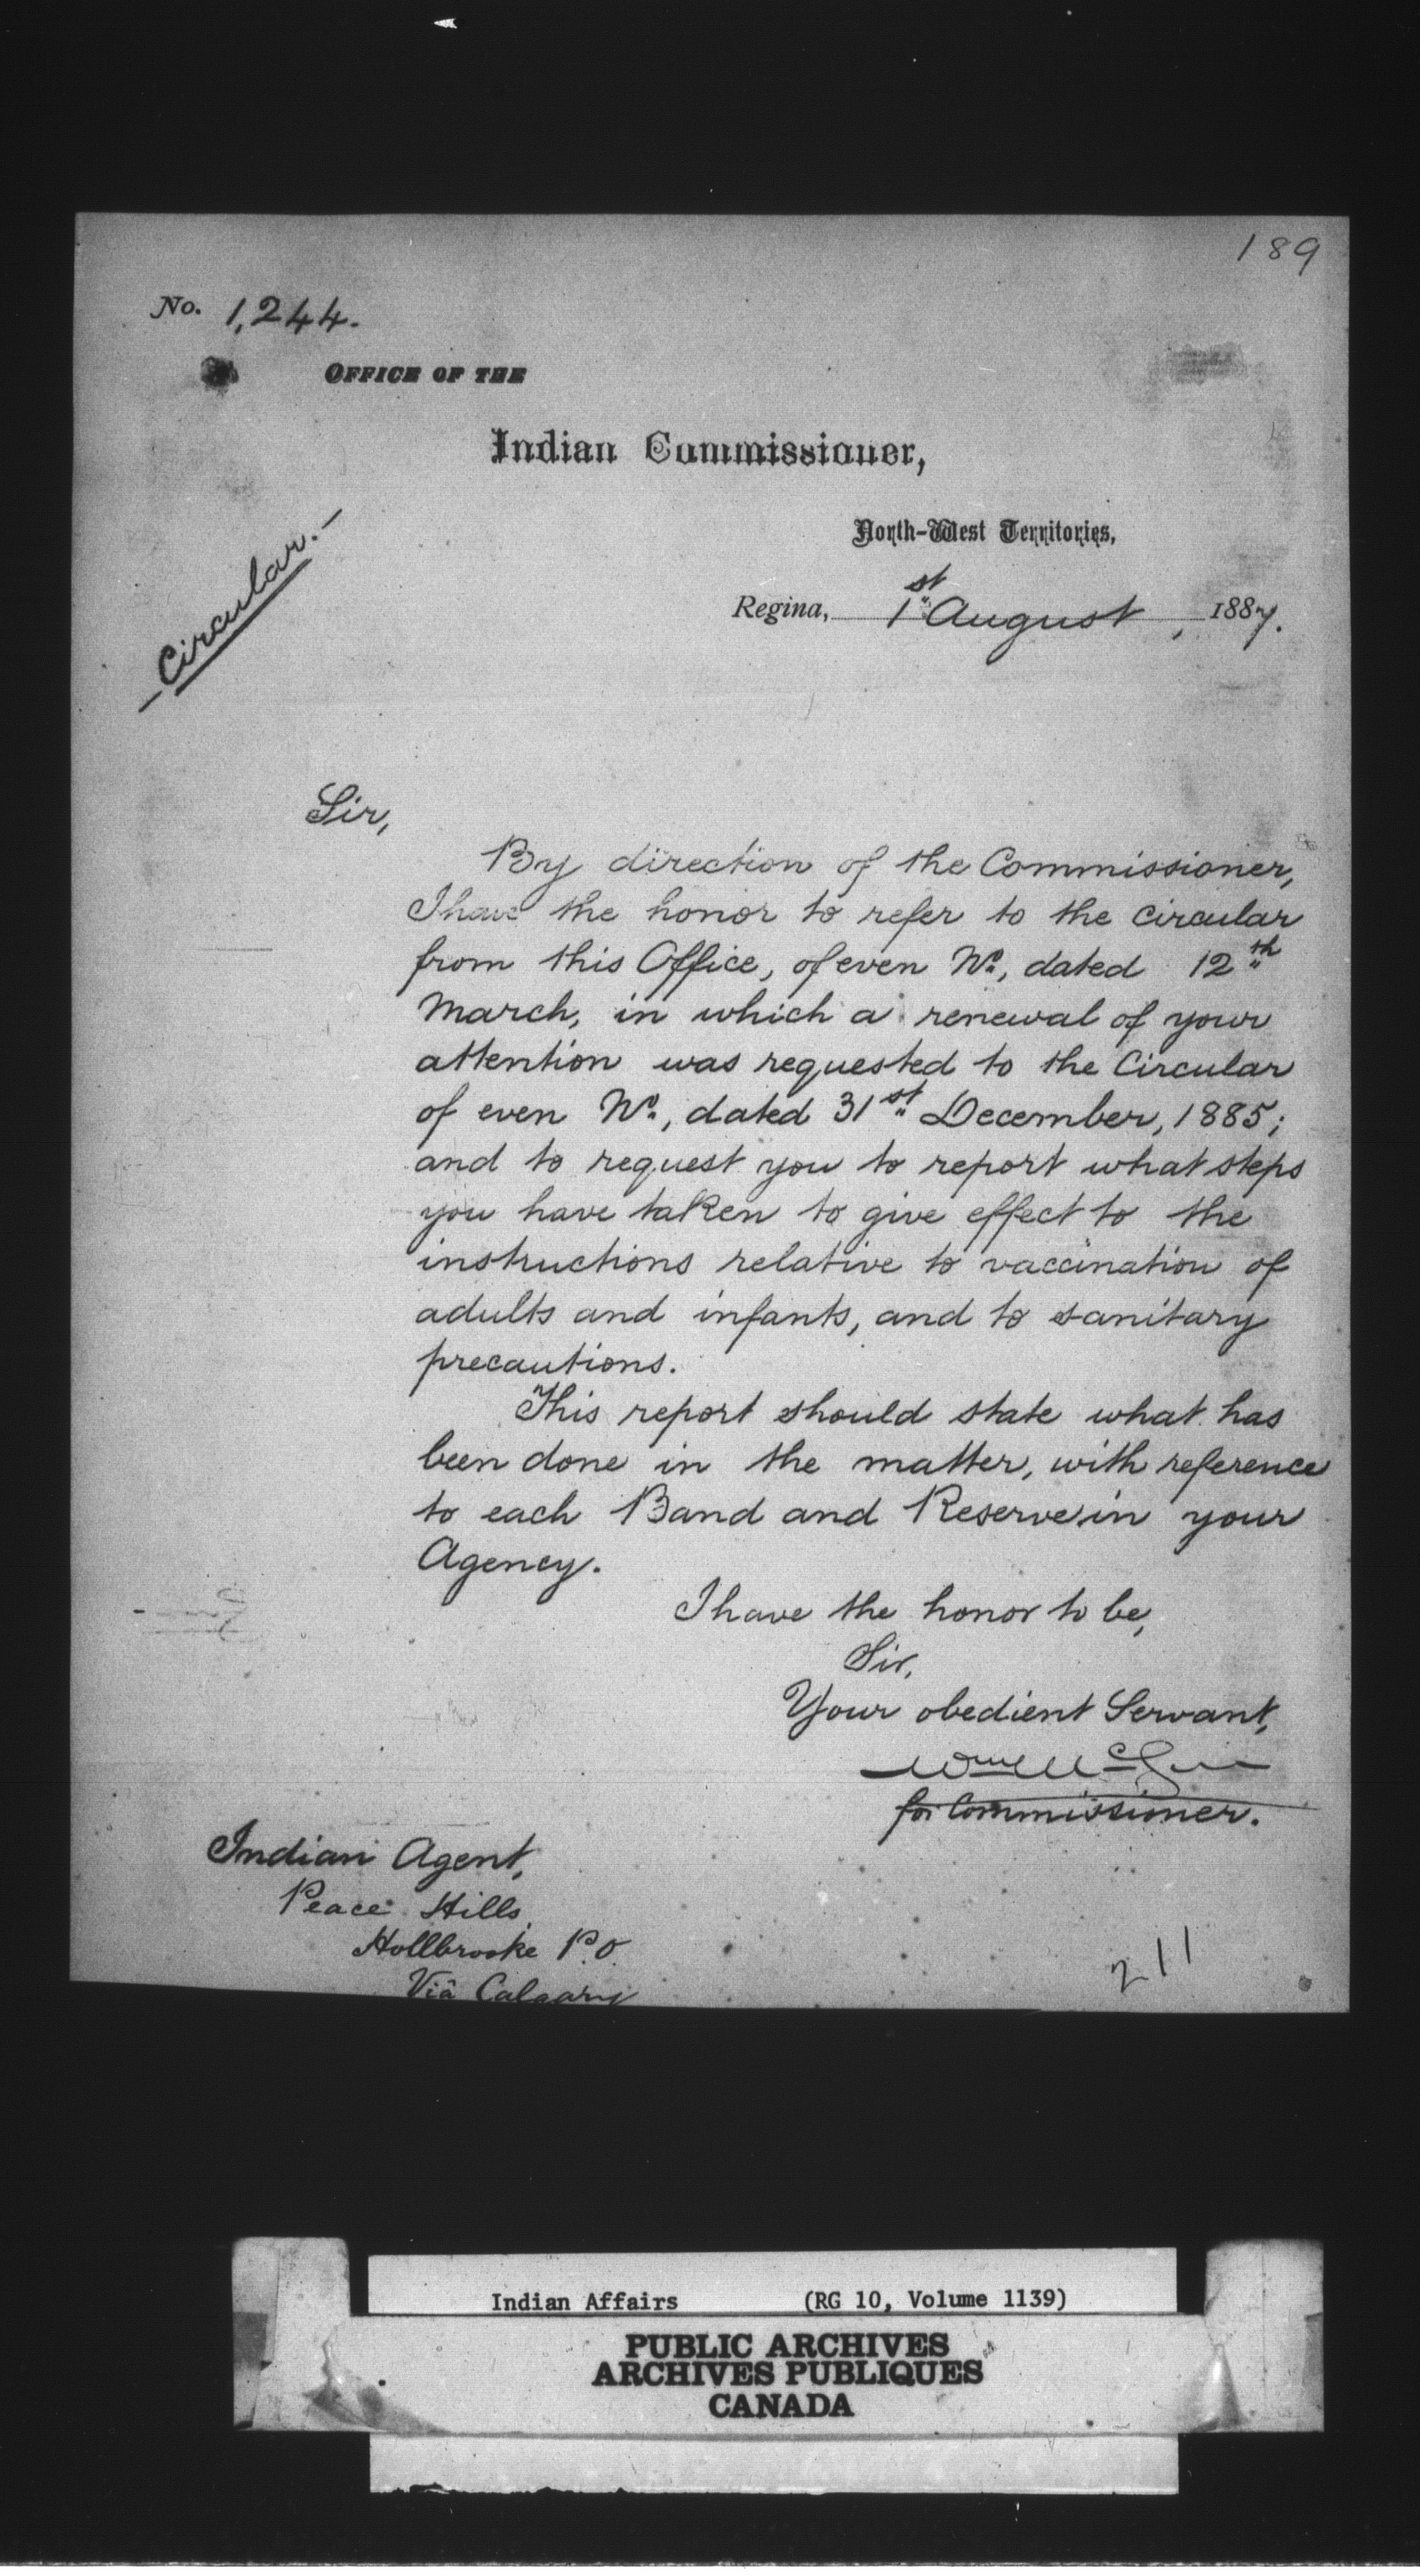 189
No. 1,244.
OFFICE OF THE
Indian Commissioner,
North-West Territories,
Regina, 1st August, 1887.
Circular.
Sir,
By direction of the Commissioner,
I have the honor to refer to the circular
from this Office, of even No., dated 12th
March, in which a renewal of your
attention was requested to the Circular
of even No., dated 31st December, 1885;
and to request you to report what steps
you have taken to give effect to the
instructions relative to vaccination of
adults and infants, and to sanitary
precautions.
This report should state what has
been done in the matter, with reference
to each Band and Reserve in your
Agency.
I have the honor to be,
Sir,
Your obedient Servant,
for Commissioner.
Indian Agent,
Peace Hills,
Hollbrooke P.O.
Viâ Calgary
211
Indian Affairs (RG 10, Volume 1139)
PUBLIC ARCHIVES
ARCHIVES PUBLIQUES
CANADA